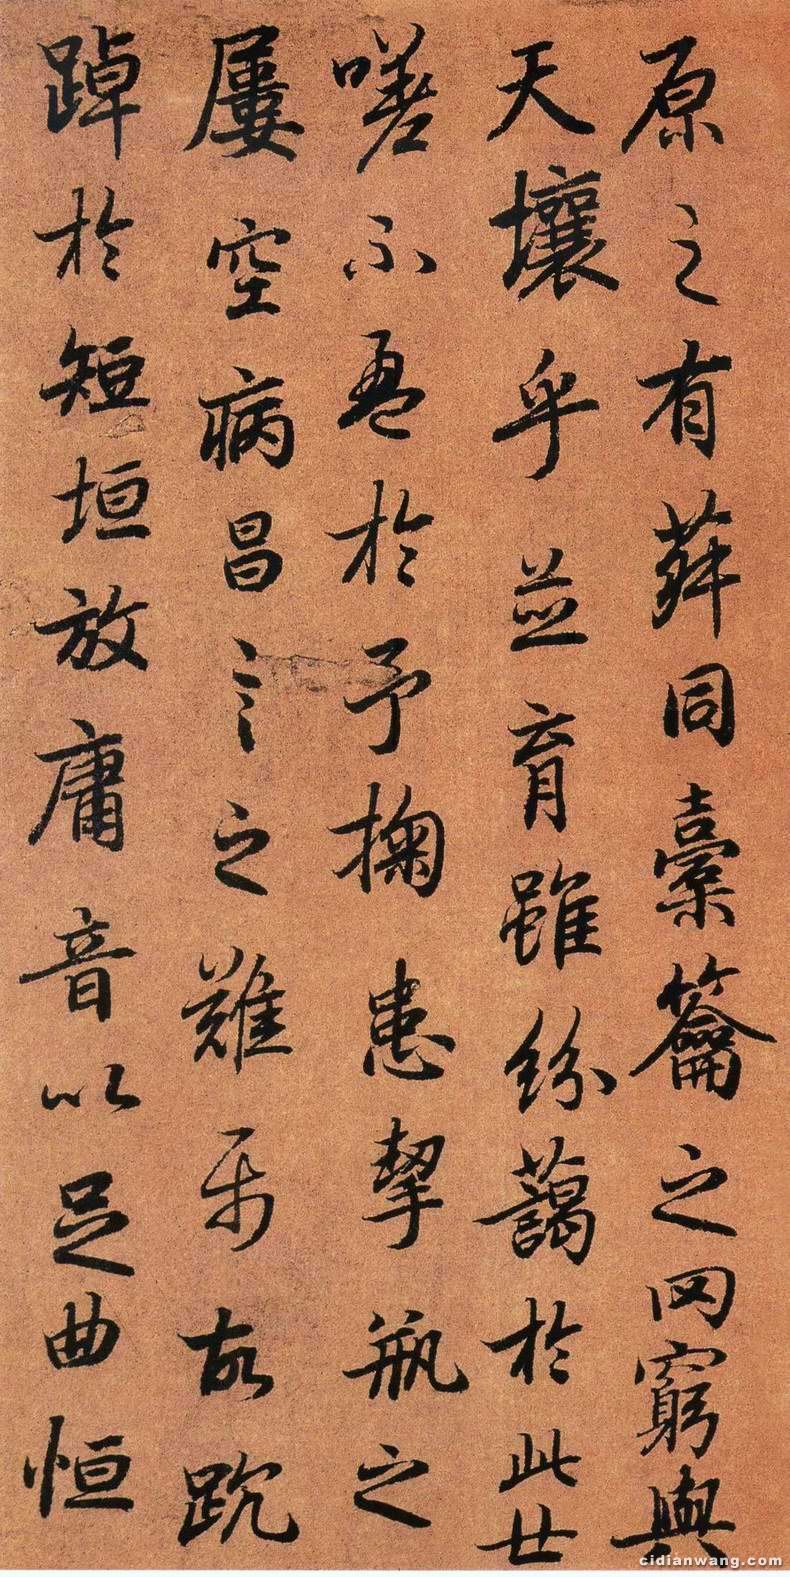 原之有菽同橐籥之罔窮與
天壤乎並育雖紛藹於此世
嗟不盈於予掬患挈瓶之
屢空病昌言之難屬故踸
踔於短垣放庸音以足曲恒
cidianwang.com